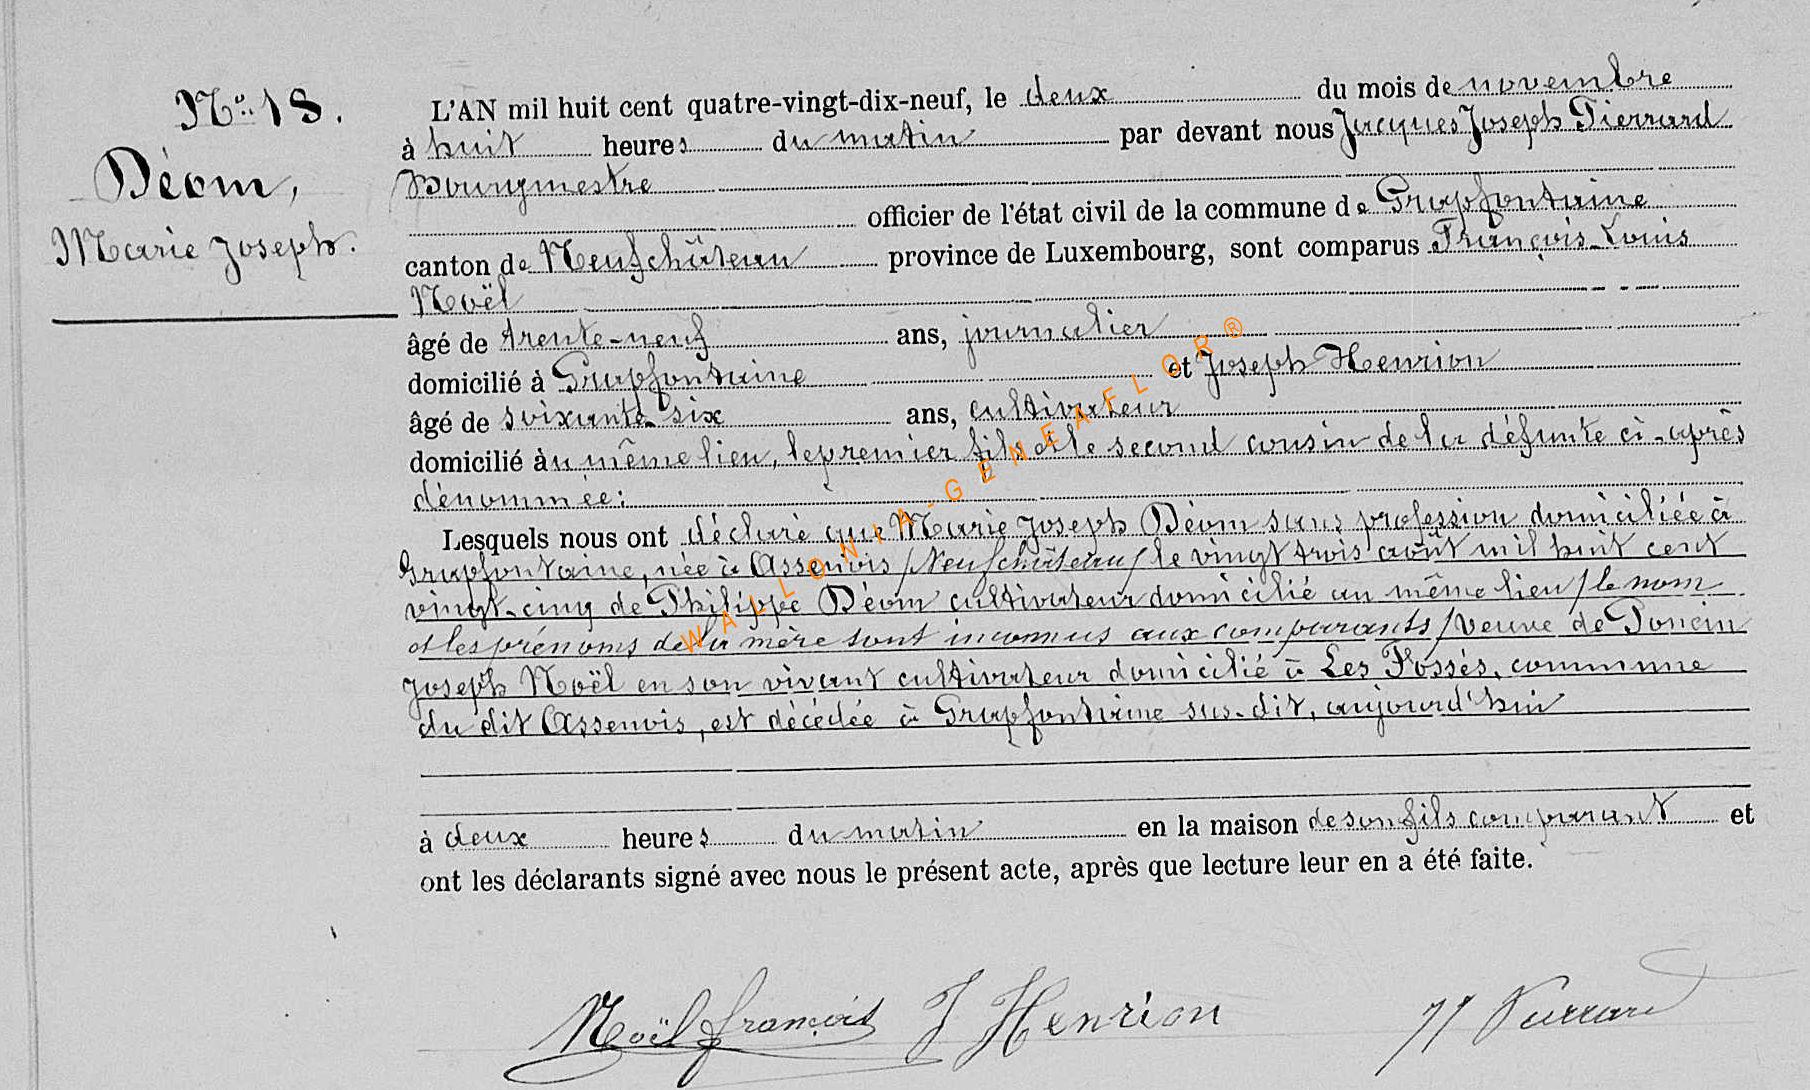 No. 18.
Déom,
Marie Joseph.
L'AN mil huit cent quatre-vingt-dix-neuf, le deux du mois de novembre
à huit heures du matin par devant nous Jacques Joseph Pierrard
Bourgmestre
officier de l'état civil de la commune de Grapfontaine
canton de Neufchâteau province de Luxembourg, sont comparus François Louis
Noël
âgé de trente-neuf ans, journalier
domicilié à Grapfontaine et Joseph Henrion
âgé de soixante-six ans, cultivateur
domicilié au même lieu, le premier fils et le second cousin de la défunte ci-après
dénommée:
Lesquels nous ont déclaré que Marie Joseph Déom sans profession domiciliée à
Grapfontaine, née à Assenois /Neufchâteau/ le vingt trois août mil huit cent
vingt-cinq de Philippe Déom cultivateur domicilié au même lieu /le nom
et les prénoms de la mère sont inconnus aux comparants/ veuve de Poncin
Joseph Noël en son vivant cultivateur domicilié à Les Fossés, commune
du dit Assenois, est décédée à Grapfontaine sus-dit, aujourd'hui
à deux heures du matin en la maison de son fils comparant et
ont les déclarants signé avec nous le présent acte, après que lecture leur en a été faite.
Noël françois J Henrion JJ Pierrard
WALLONIA-GENEAFLOR®